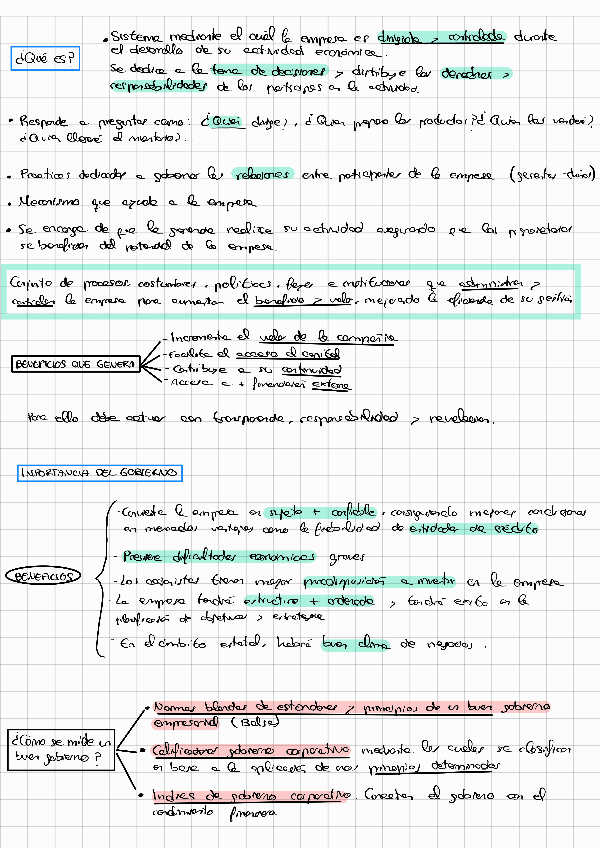 ¿Qué es?
• Sistema mediante el cuál la empresa es dirigida y controlada durante
el desarrollo de su actividad económica.
Se dedica a la toma de decisiones y distribuye los derechos y
responsabilidades de los partícipes en la actividad.
• Responde a preguntas como: ¿Quien dirige?, ¿Quien prepara los productos? ¿Quien los vende?
¿Quien llevará el inventario?.
• Practicas dedicadas a gobernar las relaciones entre participantes de la empresa (gerentes - )
• Mecanismo que ayuda a la empresa
• Se encarga de que la gerencia realice su actividad asegurando que los propietarios
se benefician del potencial de la empresa.
Conjunto de procesos, costumbres, políticas, leyes e instituciones que administran y
controlan la empresa para aumentar el beneficio y valor, mejorando la eficiencia de su gestión,
BENEFICIOS QUE GENERA
- Incrementa el valor de la compañía
- Facilita el acceso al capital
- Contribuye a su continuidad
- Acceso a + financiación externa
Para ello debe actuar con transparencia, responsabilidad y
IMPORTANCIA DEL GOBIERNO
BENEFICIOS
- Convierte la empresa en sujeto + confiable, consiguiendo mejores condiciones
en mercados como la probabilidad de entidades de crédito
- Previene dificultades económicas graves
- Los accionistas tienen mayor predisposición a invertir en la empresa
La empresa tendrá estructura + ordenada, y tendrá éxito en la
planificación de objetivos y estrategia
- En el ámbito estatal, habrá buen clima de negocios.
¿Cómo se mide un
buen gobierno?
• Normas blandas de estándares y principios de un buen gobierno
empresarial (Bolsa)
• Calificadoras gobierno corporativo mediante las cuales se clasifican
en base a la aplicación de unos principios determinados
• Indices de gobierno corporativo. Conectan el gobierno con el
rendimiento financiero